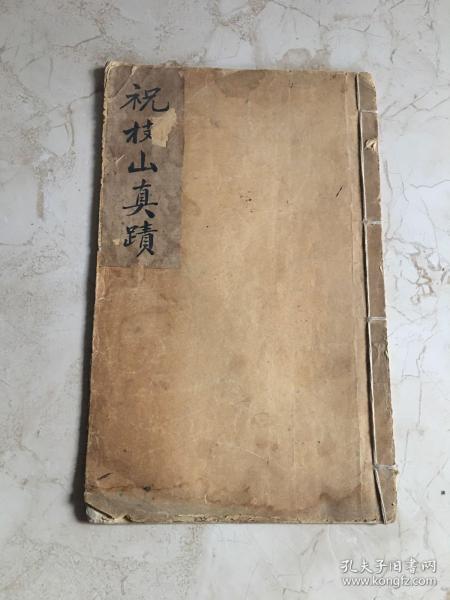 祝枝山真蹟
孔夫子旧书网
www.kongfz.com